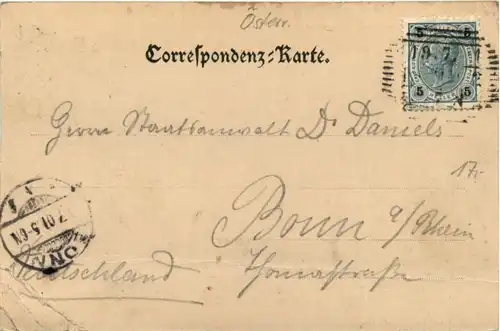 Österr.
5 5
Correspondenz-Karte.
5 5
Herrn Staatsanwalt Dr Daniels
17.
Bonn a/Rhein
Thomastraße
Deutschland